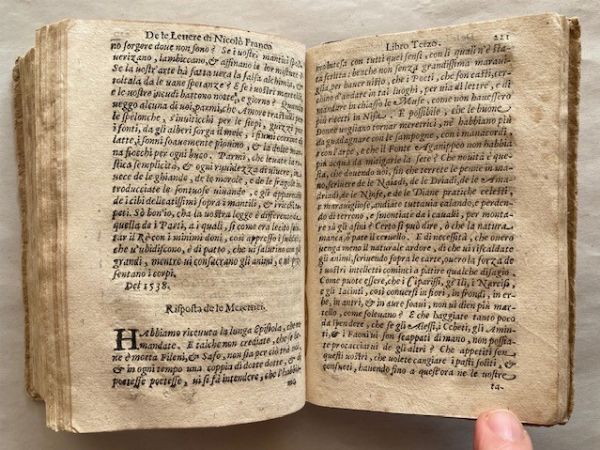 De le Lettere di Nicolò Franco
no sorgere doue non sono? Se i uostri mantici spol
uerizano, lambiccano, & affinano le lor misture?
Se la uost'arte hà fatta uera la falsa alchimia, &
uoltala da le uane speranze? E se i uostri martelli
e le uostre incudi battono notte, e giorno? Quando
ueggo alcuna di uoi, parmi, che Amore trastulli per
le spelonche, s'inuiticchi per le siepi, guizzi per
i fonti, da gli alberi sorga il mele, i fiumi corrano di
latte, i sonni soauemente piouino, & la dolce man
na fiocchi per ogni buco. Parmi, che leuate la ru
stica semplicità, & ogni ruuidezza di uiuere, in
uece de le ghiande, de le morole, e de le fragole in
troducciate le sontuose uiuande, e gli apparecchi
de i cibi delicatissimi sopra i mantili, & i ricchi ta
peti. Sò ben'io, cha la uostra legge è differente da
quella da i Parti, a i quali, si come era lecito salu
tar il Rè con i minimi doni, così appresso i sudditi,
che u'ubidiscono, è di patto, che ui salutino co' piu
grandi, mentre ui consacrano gli animi, e ui pre
sentano i corpi.
Del 1538.
Risposta de le Meretrici.
HAbbiamo riceuuta la lunga Epistola, che ne
mandate. E tal che non crediate, che se be
ne è morta Fileni, & Safo, non sia per ciò tra noi,
& in ogni tempo una coppia di dotte dotte, & che
potesse potesse, ui si fà intendere, che l'habbia
mo
Libro Terzo. 221
mo intesa con tutti quei sensi, con li quali n'è sta
ta scritta: benche non senza grandissima maraui
glia, per hauer uisto, che i Poeti, che son casti, ter
bino d'andare in tai luoghi, per uia di lettre, e di
mandare in chiasso le Muse, come non hauessero
più i recti in Nisa. E possibile, che le buone
Donne uogliano tornar meretrici, nè habbiano più
da guadagnare con le sampogne, con i manacordi,
e con l'arpe, e che il Fonte Aganippeo non habbia
più acqua da mitigarui la sete? Che nouità è que
sta, che douendo uoi, fin che terrete le penne in una
no, scriuere de le Naiadi, de le Driadi, de le Ama
driadi, de le Ninfe, e de le Diane pratiche celesti,
e marauigliose, andiate tuttauia calando, e perden
do di terreno, e smontiate da i caualli, per monta
re sù gli asini? Certo si può dire, ò che la natura
manca, ò pate il ceruello. E di necessità, che ouero
uenga meno il naturale ardore, di che ui riscaldate
gli animi, scriuendo sopra le carte, ouer la forza de
i uostri intelletti cominci a patire qualche disagio.
Come puote essere, che i Ciparissi, gelli, i Narcisi,
e gli Iacinti, così conuersi in fiori, in frondi, in er
be, in antri, & in aure soaui, non ui dien più mello,
come soleuano? E che haggiate tanto poco
da spendere, che se gli Alessi, i Cheti, gli Amin
ti, & i Fauni ui son scappati di mano, non possia
te procacciarui de gli altri? Che appetiti son
questi uostri, che uolete cangiare i pasti soliti, &
consueti, hauendo fino a quest'ora ne le uostre
ta-